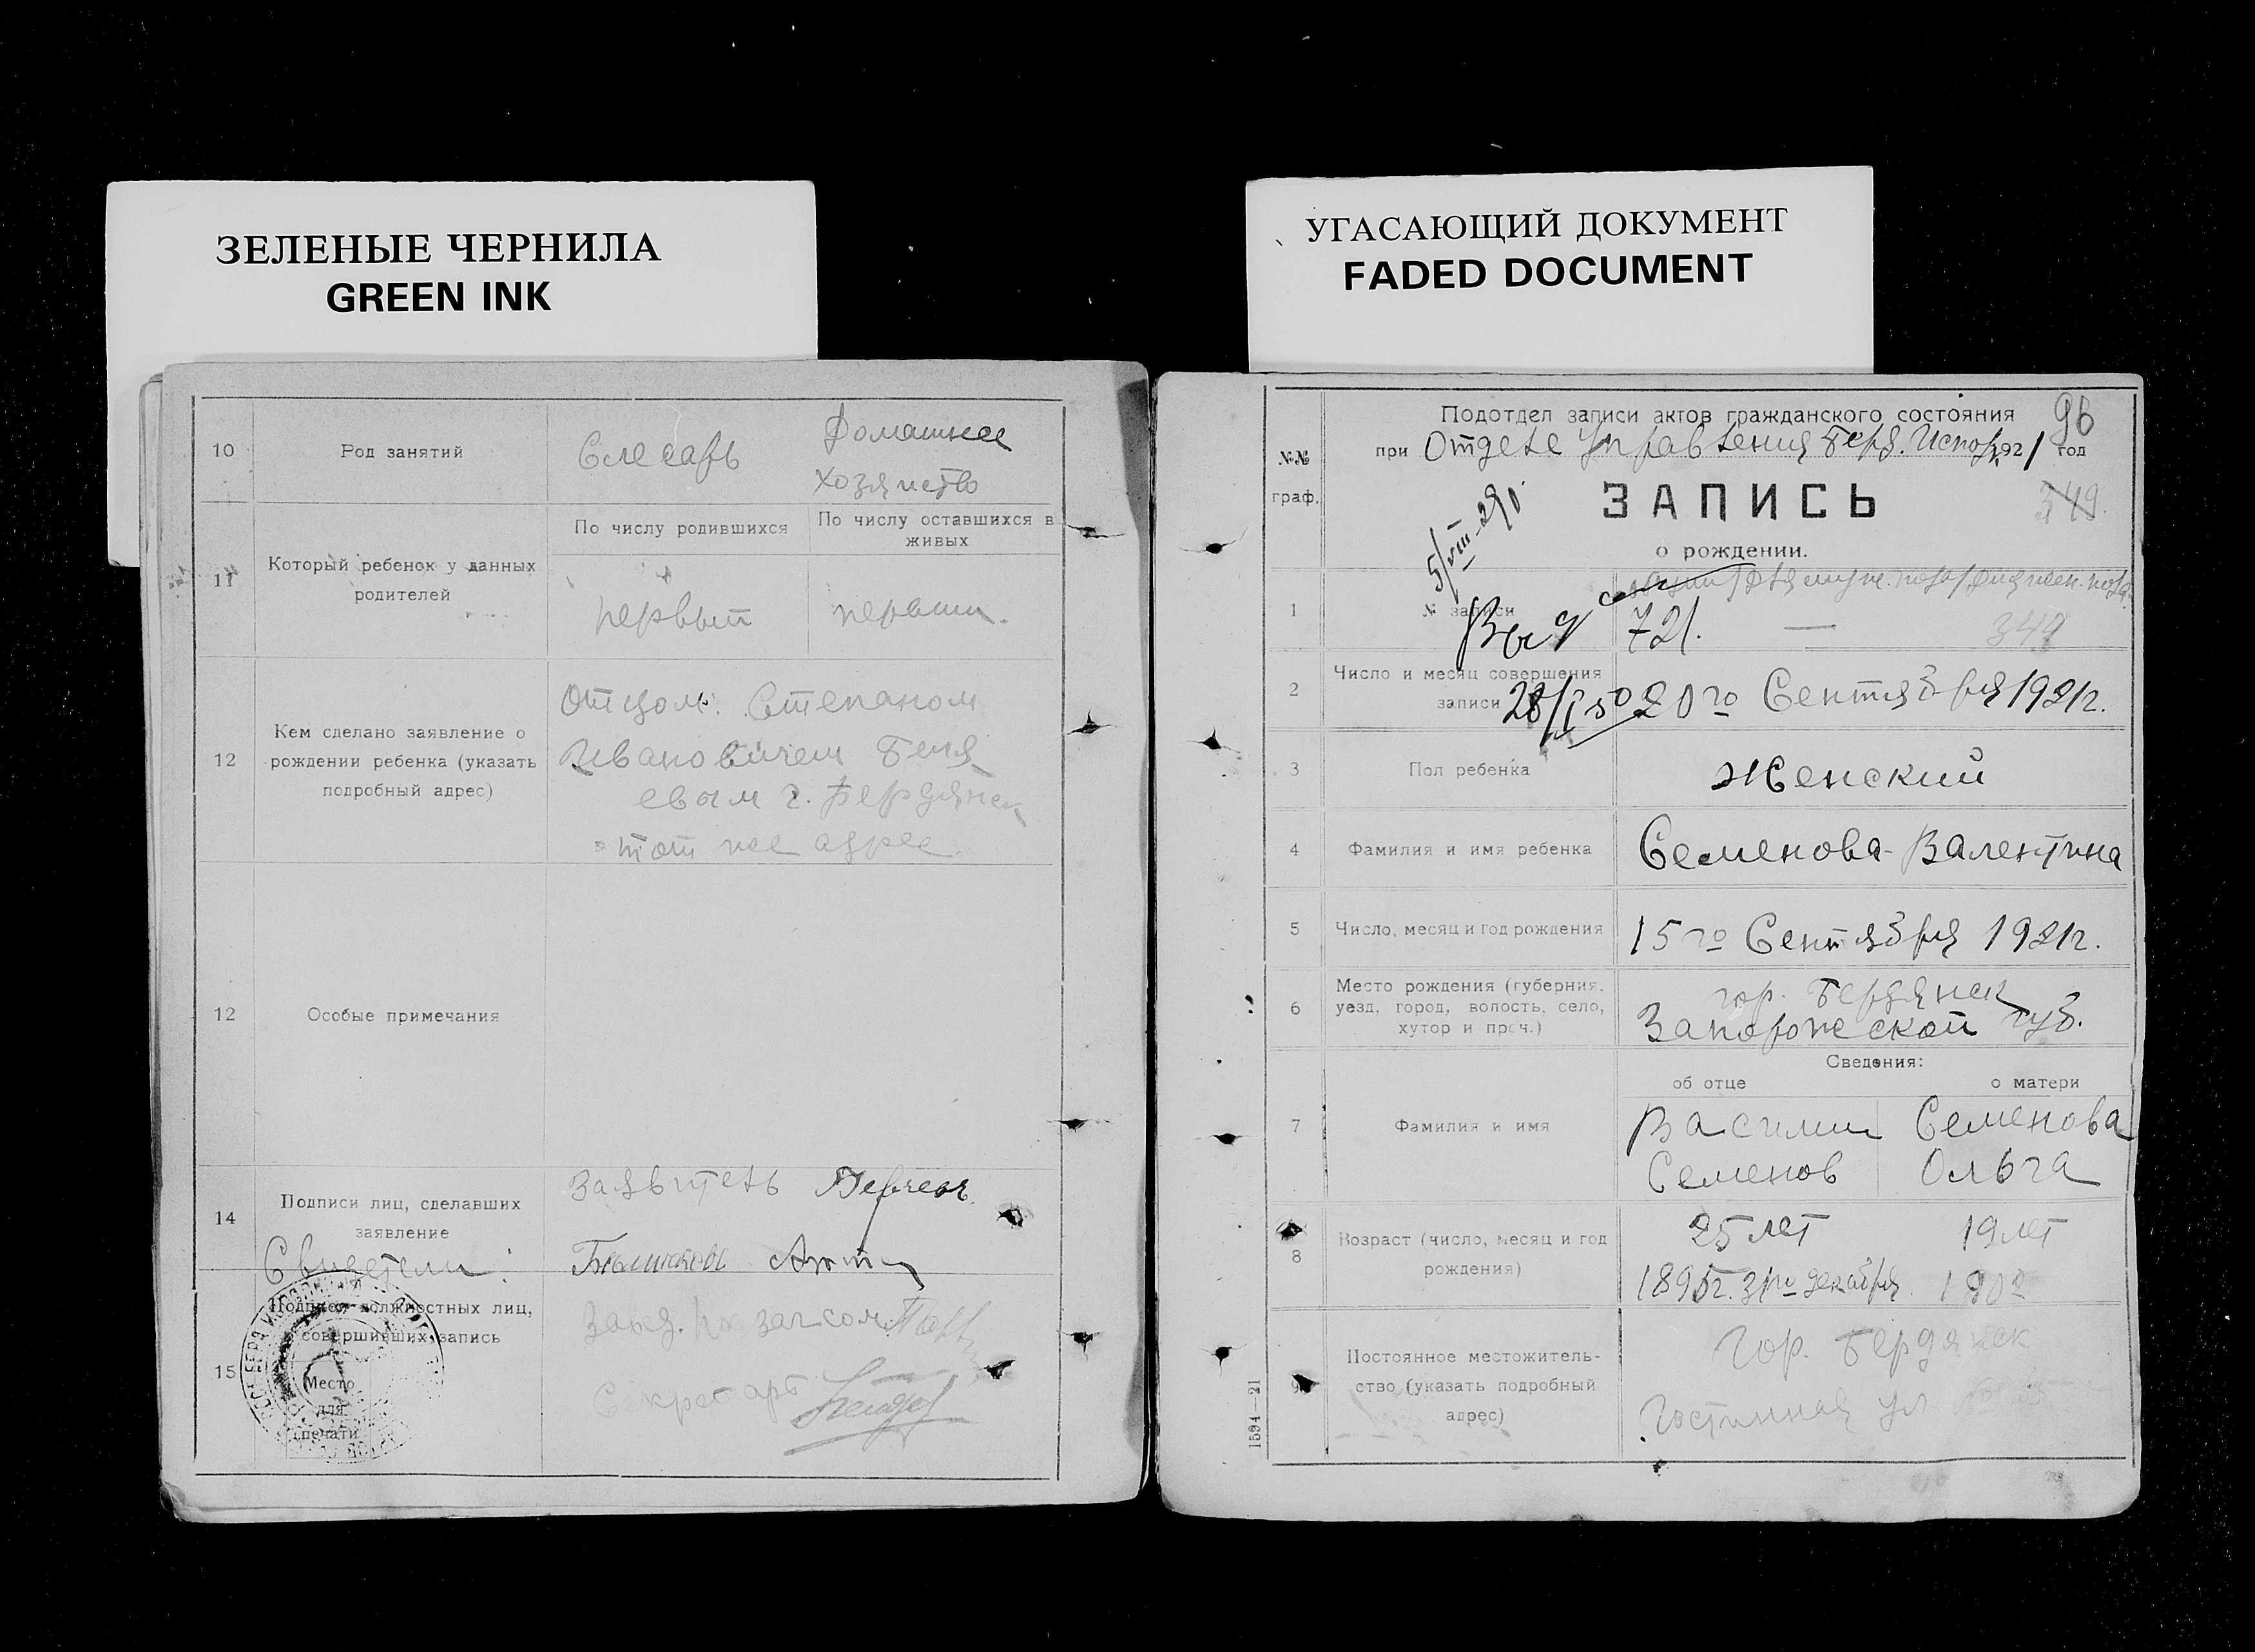 ЗЕЛЕНЫЕ ЧЕРНИЛА
GREEN INK
УГАСАЮЩИЙ ДОКУМЕНТ
FADED DOCUMENT
10
Род занятий
Слесарь
Домашнее
хозяйство
11
Который ребенок у данных
родителей
По числу родившихся
По числу оставшихся в
живых
первый
первый
12
Кем сделано заявление о
рождении ребенка (указать
подробный адрес)
Отцом: Степаном
Ивановичем
евым г. Бердянск
тот же адрес
12
Особые примечания
14
Подписи лиц, сделавших
заявление
Свидетели:
Заявитель
15
Подписи должностных лиц,
совершивших запись
Место
для
печати
Завед.
Секретарь
96
№№
граф.
Подотдел записи актов гражданского состояния
при Отделе Управления Берд. Испол. 1921 год
ЗАПИСЬ
349
о рождении.
5/VIII-29
1
№ записи
721. — 349
2
Число и месяц совершения
записи
20го Сентября 1921г.
3
Пол ребенка
Женский
4
Фамилия и имя ребенка
Семенова Валентина
5
Число, месяц и год рождения
15го Сентября 1921г.
6
Место рождения (губерния,
уезд, город, волость, село,
хутор и проч.)
гор. Бердянск
Запорожской губ.
Сведения:
об отце
о матери
7
Фамилия и имя
Василий
Семенов
Семенова
Ольга
8
Возраст (число, месяц и год
рождения)
25 лет
19 лет
1895г. 31го декабря. 1902
9
Постоянное местожитель-
ство (указать подробный
адрес)
Гор. Бердянск
Гостинная ул.
1594—21